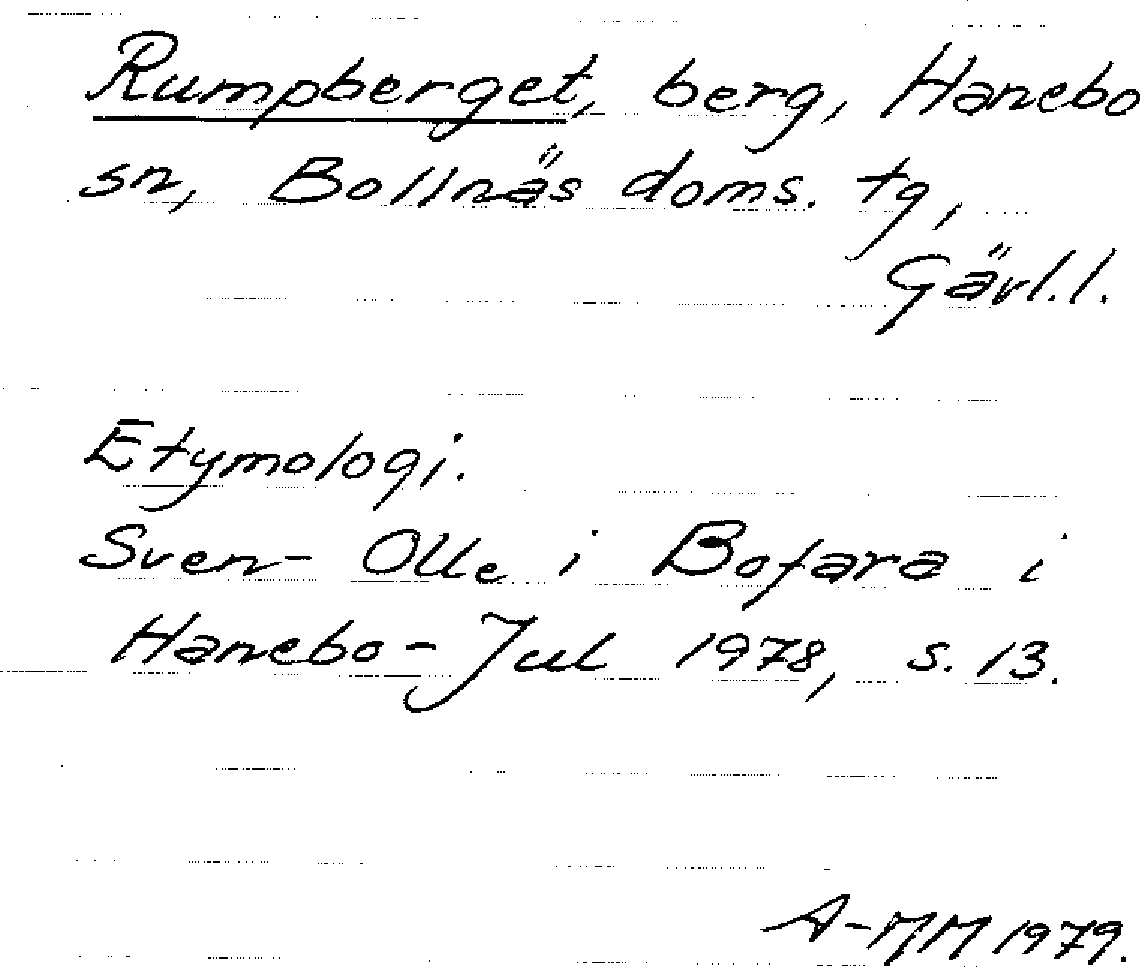 Rumpberget, berg, Hanebo
sn, Bollnäs doms. tg,
Gävl.l.
Etymologi.
Sven-Olle i Bofara i
Hanebo-Jul 1978, s. 13.
A-MM 1979.